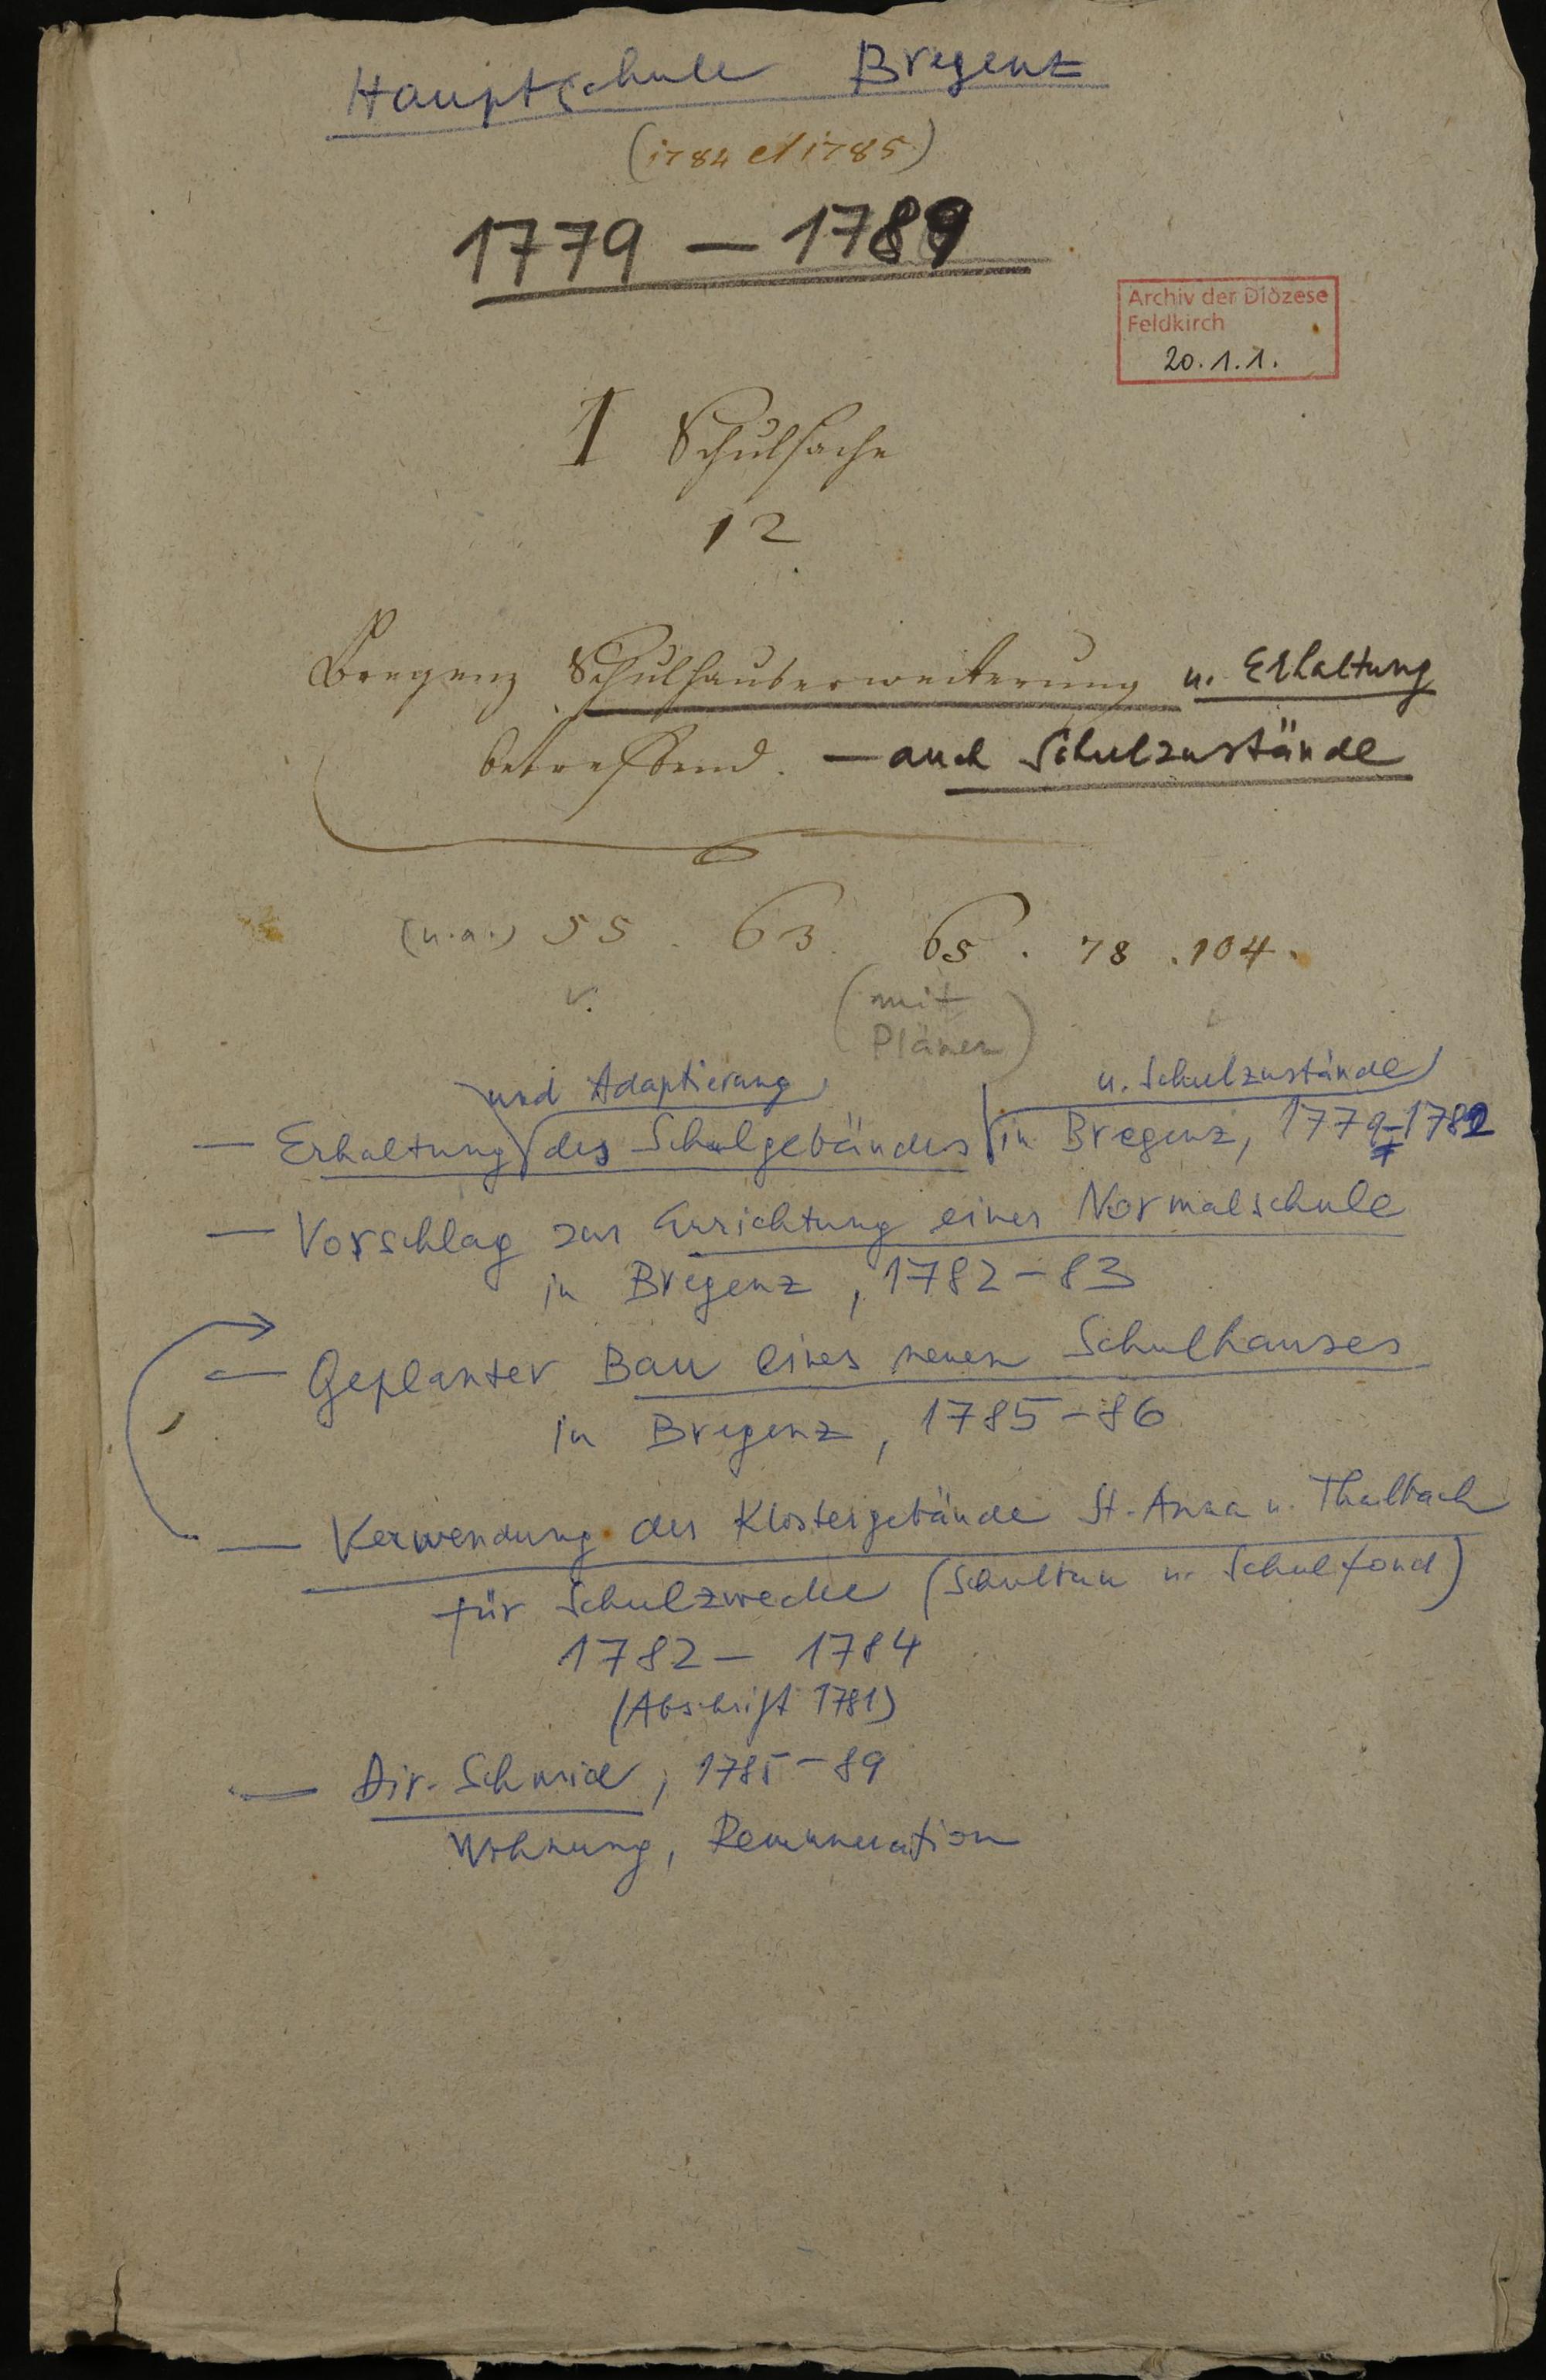 Hauptschule Bregenz
(1784 et 1785)
1779 – 1789
Archiv der Diözese
Feldkirch
20.1.1.
I Schulsache
12
Bregenz Schulhauserweiterung u. Erhaltung
betreffend. – auch Schulzustände
(u.a.) 55 . 63 . 65 . 78 . 104 .
(mit
Plänen)
und Adaptierung u. Schulzustände
— Erhaltung des Schulgebäudes in Bregenz, 1779-1782
— Vorschlag zur Errichtung einer Normalschule
in Bregenz, 1782-83
— Geplanter Bau eines neuen Schulhauses
in Bregenz, 1785-86
— Verwendung der Klostergebäude St. Anna u. Thalbach
für Schulzwecke (Schulbau u. Schulfond)
1782 – 1784
(Abschrift 1781)
— Dir. Schmid, 1785-89
Wohnung, Remuneration